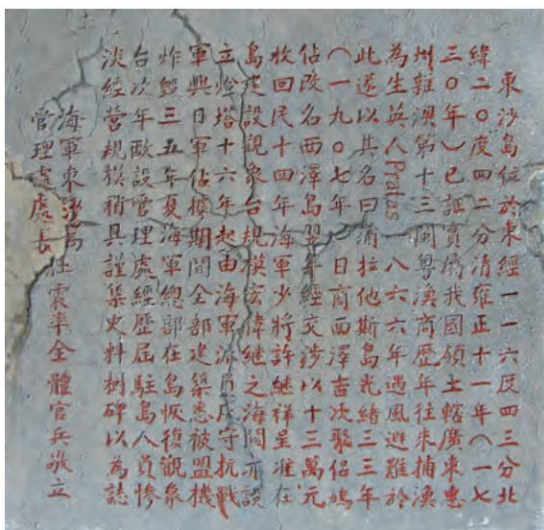 東沙島位於東經一一六度四三分北
緯二〇度四二分清雍正十一年(一七
三〇年)已証實屬我國領土轄廣東惠
州雜澳第十三閩粵漁商歷年往來捕漁
為生英人Pratas一八六六年遇風避難於
此遂以其名曰浦拉他斯島光緒三三年
(一九〇七年)日商西澤吉次聚侶鳩
佔改名西澤島翌年經交涉以十三萬元
收回民十四年海軍少將許繼祥呈准在
島建設觀象台規模宏偉繼之海関亦設
立燈塔十六年起由海軍派員戍守抗戰
軍興日軍佔據期間全部建築悉被盟機
炸毀三五年夏海軍總部在島恢復觀象
台次年歐設管理處經歷屆駐島人員慘
淡經營規模稍具謹築史料樹碑以為誌
海軍東沙島
管理處處長杜震率全體官兵敬立